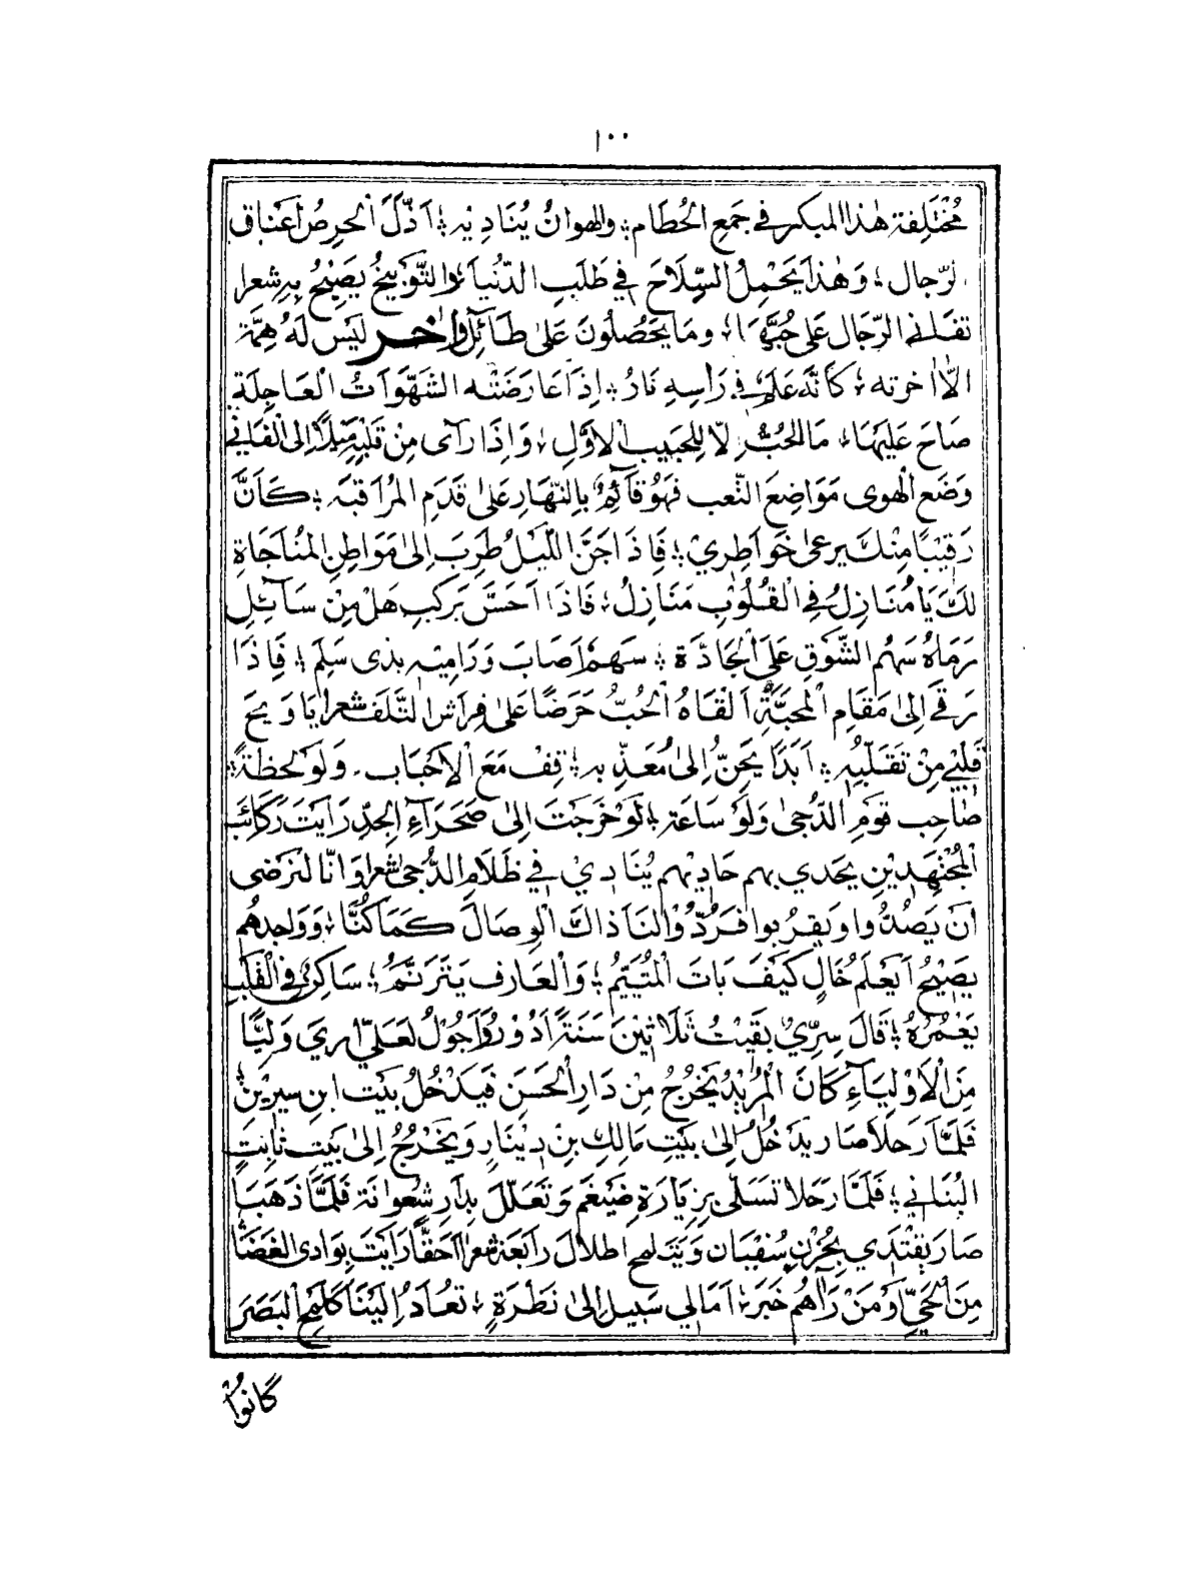 ١٠٠
مُخْتَلِفة هٰذا المبكر في جَمْعِ الْحُطَام ؛ والهوانُ يُنَادِيْهِ ؛ اَذَلَّ الْحِرْصُ اَعْنَاق
الرّجال ؛ وَهٰذا يَحْمِلُ السِّلَاحَ فِي طَلَبِ الدُّنْيَا وَالتَّوْبِيْخُ يَصِيْحُ بِهِ شعرا
تفـانى الرّجَال عَلى حُبِّهَا ؛ ومَا يَحْصُلُوْنَ عَلىٰ طَائِلٍ وٰاخـر لَيْسَ لَهُ هِمَّة
الاّ اخرته ؛ كَاَنَّهُ عَلَمٌ فِي رَاسِهِ نَارُ ؛ اِذَا عَارَضَتْه الشَّهَوَاتُ الْعَاجِلَةِ
صَاحَ عَلَيْهَا ؛ مَا الحُبُّ اِلاَّ لِلْحَبِيبِ الْاَوَّلِ ؛ وَاِذَا رَآى مِنْ قَلْبِهٖ مَيْلًا اِلى الْفَانِي
وَضَعَ الْهَوى مَوَاضِعَ التَّعب فَهُوَ قَآئِمٌ بِالنَّهَارِ عَلىٰ قَدَمِ المُرَاقبَةِ ؛ كَاَنَّ
رَقِيْبًا مِنْكَ يَرعىٰ خَوَاطِرِيْ ؛ فَاِذَا جَنَّ اللَّيْلُ طَرِبَ اِلىٰ مَوَاطِنِ المُنَاجَاةِ
لَكَ يَا مَنَازِلُ فِي الْقُلُوْبِ مَنَازِلُ ؛ فَاِذَا اَحَسَّ بَركبٍ هَلْ مِنْ سَآئِلٍ
رَمَاهُ سَهْمُ الشَّوْقِ عَلَى الْجَادَّةِ ؛ سَهْمٌ اَصَابَ وَرَامِيْهِ بِذى سَلَمٍ ؛ فَاِذَا
رَقَى اِلىٰ مَقَامِ الْمَحَبَّةِ اَلْقَاهُ الْحُبُّ حَرَضًا عَلىٰ فِرَاشِ التَّلَف شعر يَا وَيحَ
قَلْبِي مِنْ تَقَلُّبِهِ ؛ اَبَدًا يَحِنُّ اِلىٰ مُعَذِّبِهِ ؛ قِفْ مَعَ الْاَحْبَاب ۔ وَلَوْ لَحْظَةً ؛
صَاحِب قَوْمِ الدُّجىٰ وَلَوْ سَاعَة ؛ لَوْ خَرَجْتَ اِلىٰ صَحْرَآءِ الْجِدِّ رَاَيْتَ رَكَائِبَ
الْمُجْتَهِدِيْنِ يَحْدي بهم حَادِيْهِم يُنَادِيْ فِي ظَلَامِ الدُّجىٰ شعر وَاِنّا لنرْضى
اَنْ يَصُدُّوا وَيقرُبوا فَرُدُّوْا لَنَا ذاكَ الْوِصَالَ كَمَا كُنَّا ؛ وَوَاجِدُهُم
يَصِيْحُ اَيَعْلَمُ خَالٍ كَيْفَ بَاتَ الْمُتَيَّمُ ؛ وَالْعَارِف يَتَرَنَّمُ ؛ سَاكِنٌ فِي الْقَلْبِ
يَعْمُرُهُ ؛ قَالَ سِرِّيٌ بَقَيْتُ ثَلَاثِيْنَ سَنَةً اَدُوْرُ وَاَجُوْلُ لَعَلِّيْ اَرىَ وَلِيًّا
مِنَ الْاَوْلِيَآءِ كَانَ الْمُرِيْدُ يَخْرُجُ مِنْ دَارِ الْحَسَنِ فَيَدْخُلُ بَيْت ابنِ سِيرِيْنَ
فَلَمَّا رَحَلاَ صَار يَدْخُلُ اِلىٰ بَيْتِ مَالِكِ بْنِ دِيْنَارٍ وَيَخْرُجُ اِلىٰ بَيْتِ ثَابِتٍ
الْبُنَانِي ؛ فَلَمَّا رَحَلا تَسَلّٰى بِزِيَارَةِ ضَيْغَم وَتَعَلّلَ بِدَارِ شِعْوانَة فَلَمَّا ذَهَبَا
صَارَ يَقْتَدِي بِحُزْنِ سُفْيَان وَيَتَلمح اطْلالَ رَابعَة شعر اَحَقًّا رَاَيْتَ بِوَادى الغَضَا
مِنَ الْحَيِّ اَوْ مَنْ رَآهُم خَبَرَ ؛ اَمَا لِي سَبِيل اِلىٰ نَظْرَةٍ ؛ تُعَادُ اِلَيْنَا كَلَمْحِ الْبَصَرَ
كَانُوْا